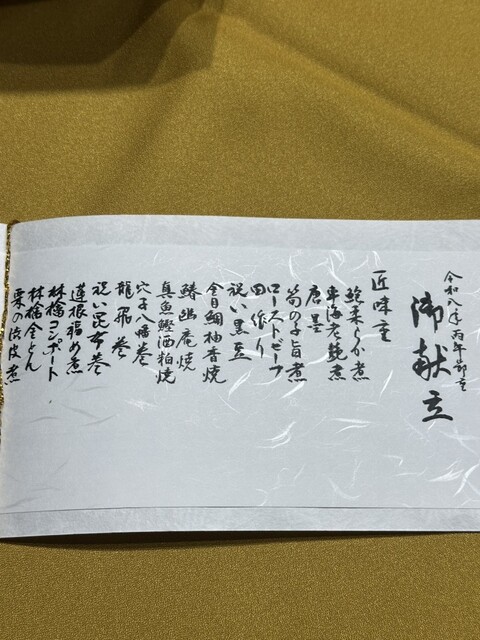 令和八年丙午
御献立
匠味重
鮑柔らか煮
車海老艶煮
唐墨
筍の子旨煮
ローストビーフ
田作り
祝い黒豆
金目鯛柚香焼
鰆幽庵焼
真魚鰹酒粕焼
穴子八幡巻
龍飛巻
祝い昆布巻
蓮根福め煮
林檎コンポート
林檎金とん
栗の渋皮煮